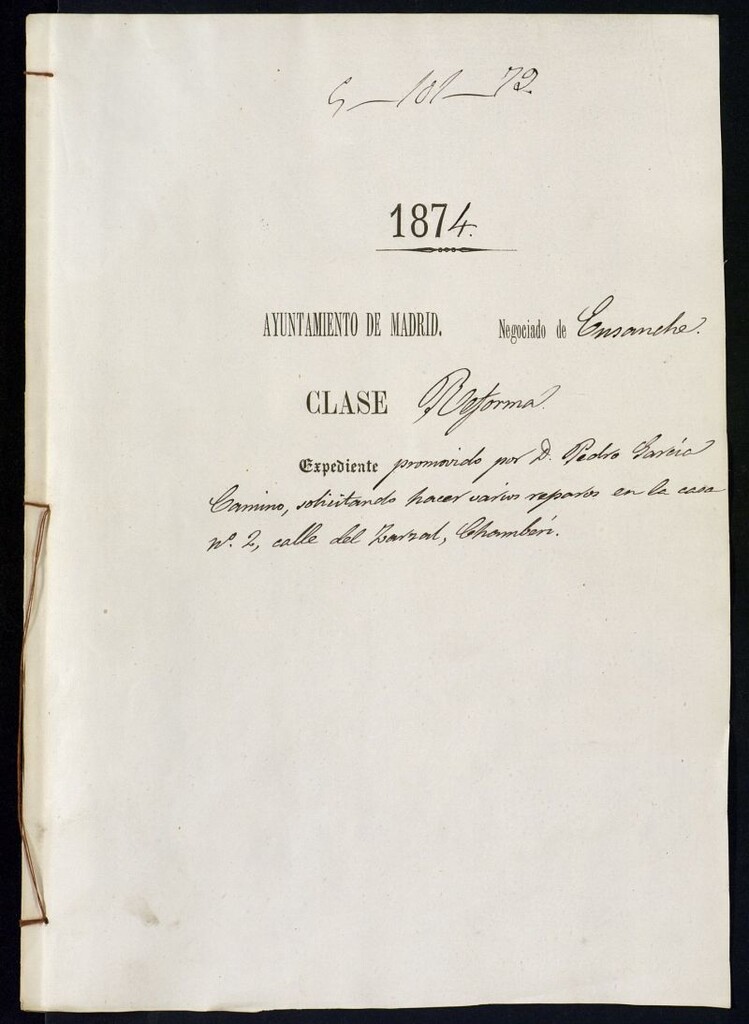 5-101-72
1874.
AYUNTAMIENTO DE MADRID. Negociado de Ensanche.
CLASE Reforma.
Expediente promovido por D. Pedro García
Camino, solicitando hacer varios reparos en la casa
nº. 2, calle del Zarzal, Chamberí.